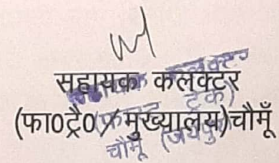 सहायक कलेक्टर
(फा०ट्रै०/मुख्यालय)चौमूँ
चौमूं (जयपुर)